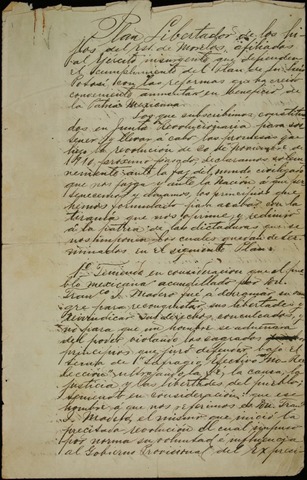 Plan Libertador de los hi-
jos del Est. de Morelos, afiliados
al Ejército insurgente que defienden
el cumplimiento del Plan de San Luis
Potosí con las reformas que ha creido
conveniente aumentar en beneficio de
la Patria Mexicana.
Los que subscribimos, constitui-
dos en Junta Revolucionaria, para sos-
tener y llevar a cabo las promesas que
hizo la revolución de 20 de Noviembre de
1910, próximo pasado, declaramos solem-
nemente ante la faz del mundo civilizado
que nos juzga y ante la Nación a que per-
tenecemos y amamos, los principios que
hemos formulado para acabar con la
tiranía que nos oprime y redimir
a la patria de las dictaduras que se
nos imponen, los cuales quedan deter-
minados en el siguiente Plan:
1o. Teniendo en consideración que el pue-
blo mexicano acaudillado por Dn.
Franco. I. Madero fué a derramar su san-
gre para reconquistar sus libertades y
reivindicar sus derechos conculcados, y
no para que un hombre se adueñara
del poder violando los sagrados
principios que juró defender bajo el
lema de "Sufragio Efectivo" "No Re-
elección" ultrajando la fé, la causa, la
justicia y las libertades del pueblo;
teniendo en consideración: que ese
hombre a que nos referimos es Dn. Fran-
I. Madero, el mismo que inició la
precitada revolución el cual impuso
por norma su voluntad e influencia
al Gobierno Provisional del Ex-presi-